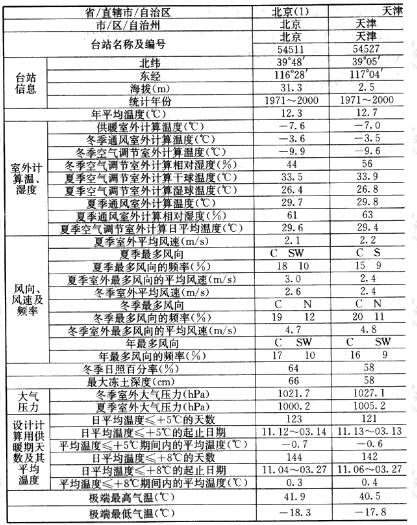 省/直辖市/自治区 北京(1) 天津
市/区/自治州 北京 天津
台站名称及编号 北京 天津
54511 54527
台站信息
北纬 39°48′ 39°05′
东经 116°28′ 117°04′
海拔(m) 31.3 2.5
统计年份 1971～2000 1971～2000
年平均温度(℃) 12.3 12.7
室外计算温、湿度
供暖室外计算温度(℃) −7.6 −7.0
冬季通风室外计算温度(℃) −3.6 −3.5
冬季空气调节室外计算温度(℃) −9.9 −9.6
冬季空气调节室外计算相对湿度(%) 44 56
夏季空气调节室外计算干球温度(℃) 33.5 33.9
夏季空气调节室外计算湿球温度(℃) 26.4 26.8
夏季通风室外计算温度(℃) 29.7 29.8
夏季通风室外计算相对湿度(%) 61 63
夏季空气调节室外计算日平均温度(℃) 29.6 29.4
风向、风速及频率
夏季室外平均风速(m/s) 2.1 2.2
夏季最多风向 C SW C S
夏季最多风向的频率(%) 18 10 15 9
夏季室外最多风向的平均风速(m/s) 3.0 2.4
冬季室外平均风速(m/s) 2.6 2.4
冬季最多风向 C N C N
冬季最多风向的频率(%) 19 12 20 11
冬季室外最多风向的平均风速(m/s) 4.7 4.8
年最多风向 C SW C SW
年最多风向的频率(%) 17 10 16 9
冬季日照百分率(%) 64 58
最大冻土深度(cm) 66 58
大气压力
冬季室外大气压力(hPa) 1021.7 1027.1
夏季室外大气压力(hPa) 1000.2 1005.2
设计计算用供暖期天数及其平均温度
日平均温度≤+5℃的天数 123 121
日平均温度≤+5℃的起止日期 11.12～03.14 11.13～03.13
平均温度≤+5℃期间内的平均温度(℃) −0.7 −0.6
日平均温度≤+8℃的天数 144 142
日平均温度≤+8℃的起止日期 11.04～03.27 11.06～03.27
平均温度≤+8℃期间内的平均温度(℃) 0.3 0.4
极端最高气温(℃) 41.9 40.5
极端最低气温(℃) −18.3 −17.8